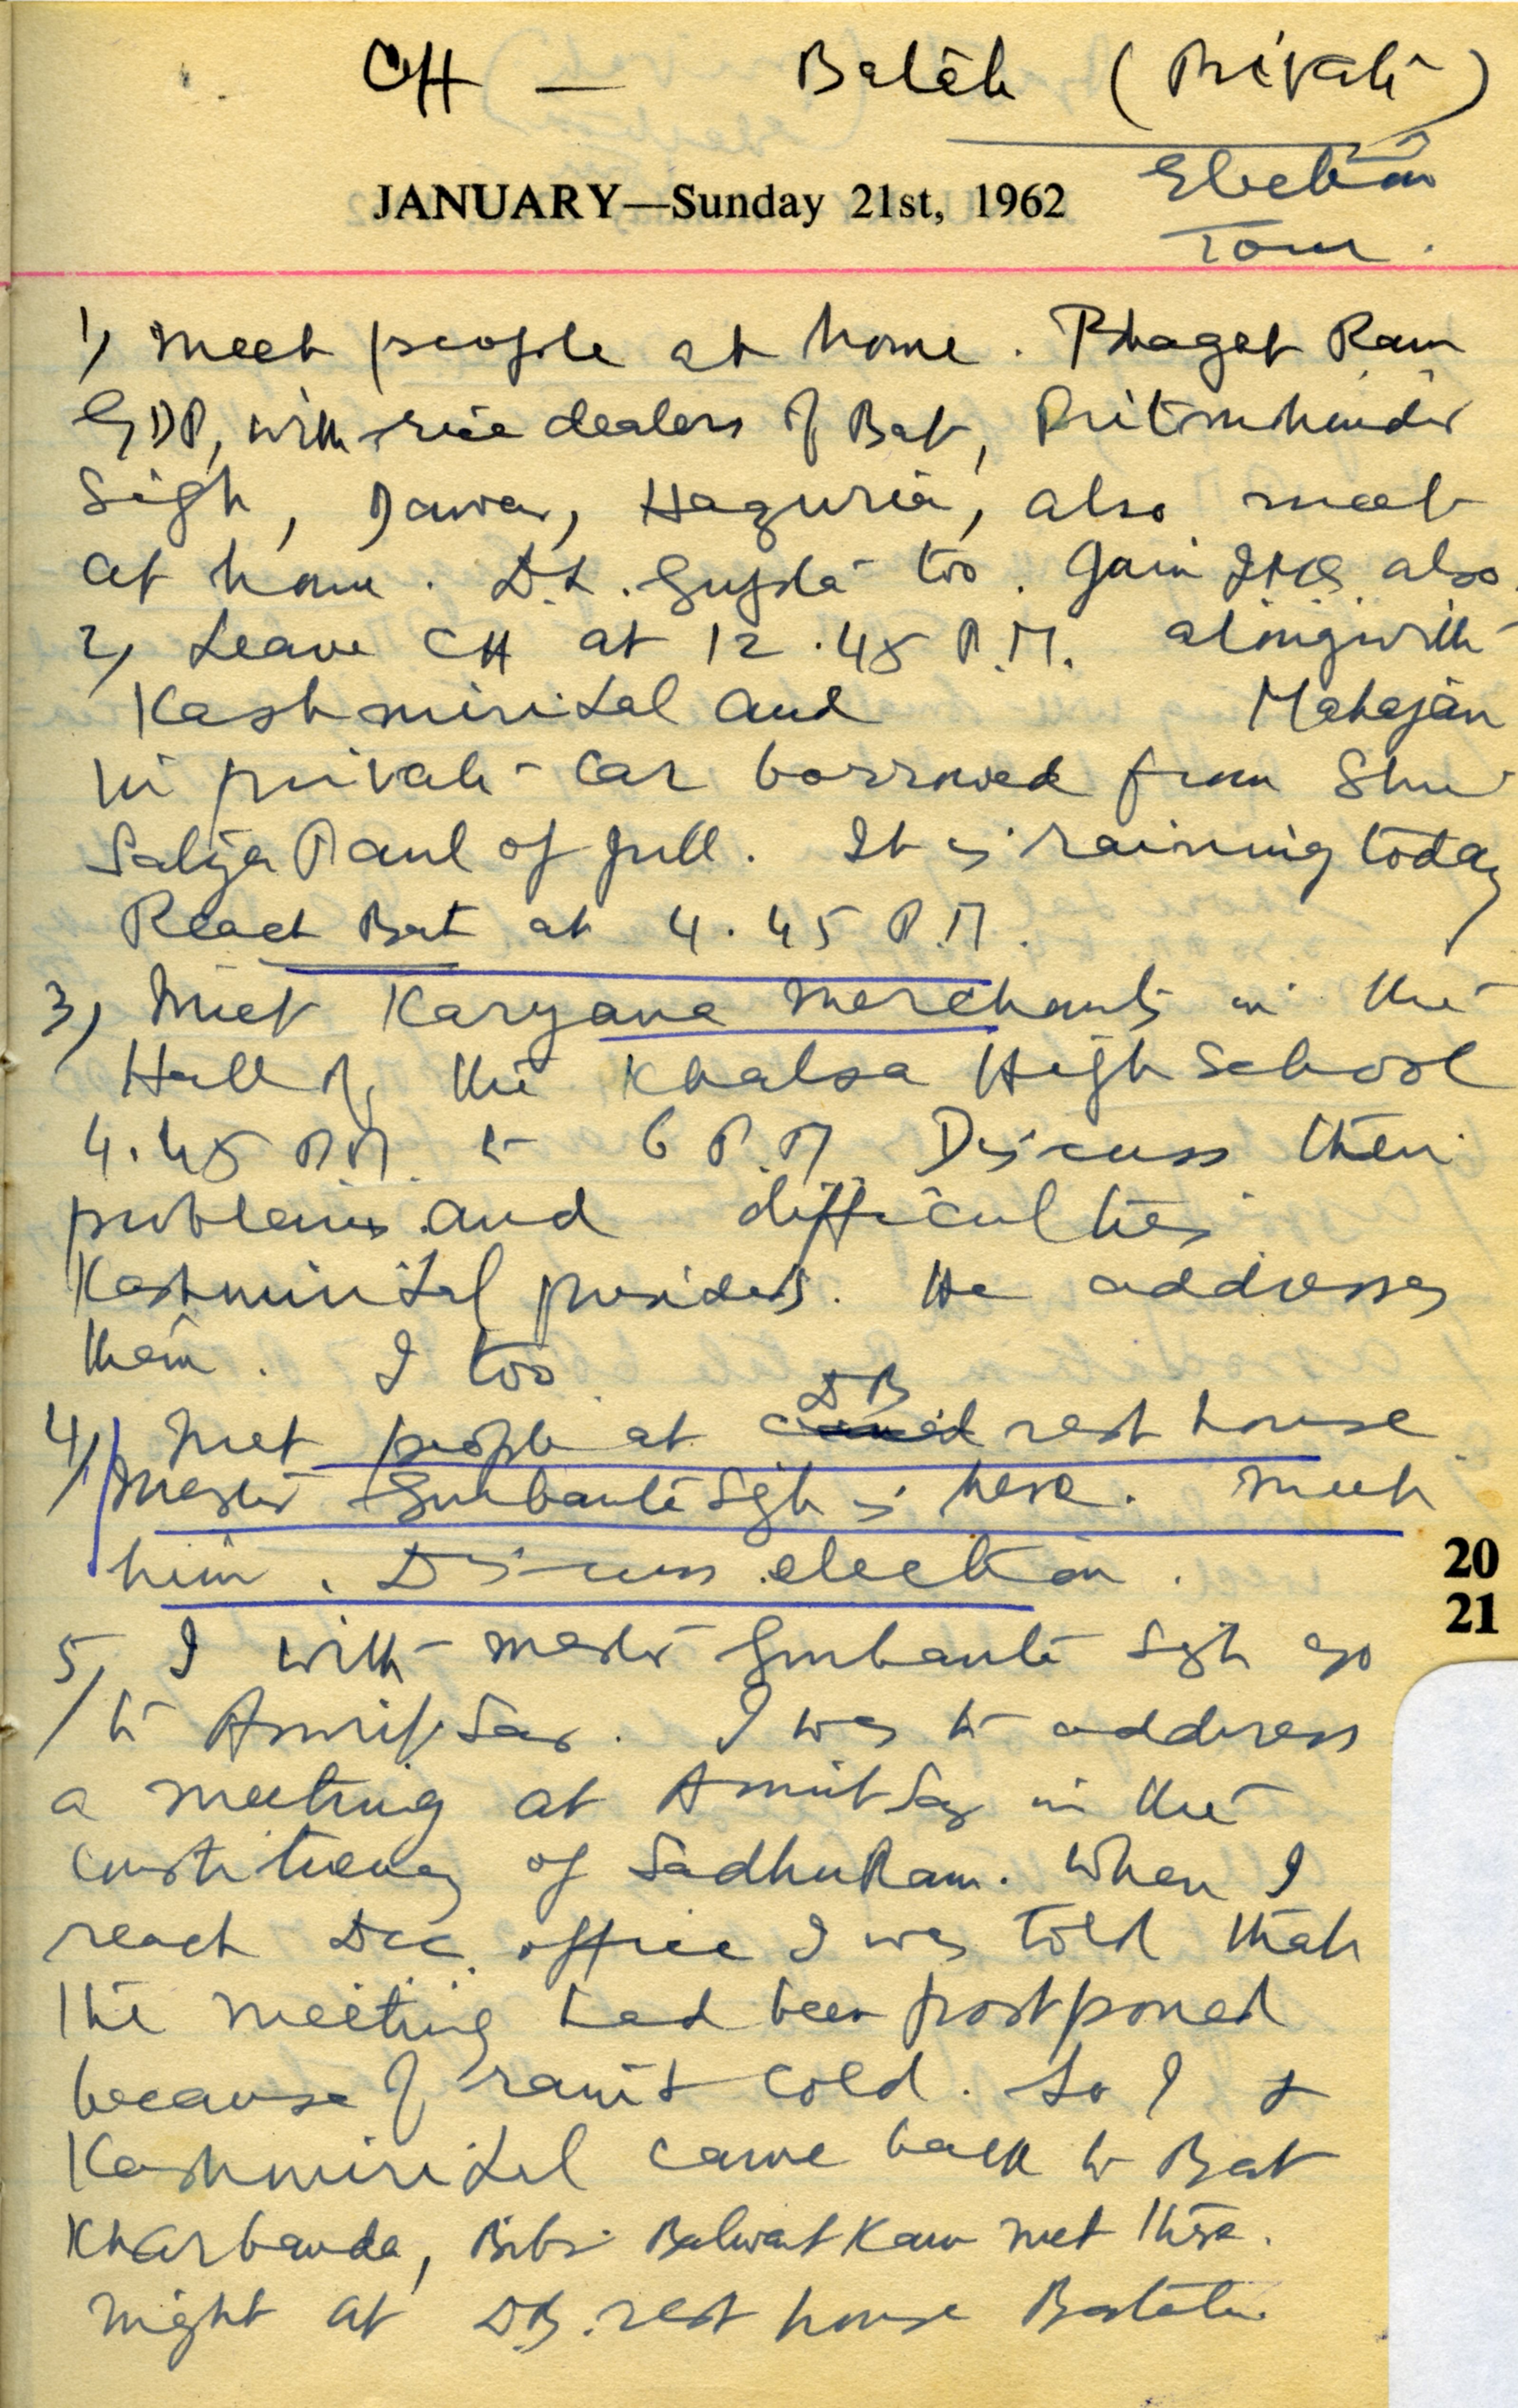 CH — Batala (Private)
Election
JANUARY—Sunday 21st, 1962
Tour.
1) Meet people at home. Bhagat Ram
GDP, with rice dealers of Bat, Pritmhinder
Sigh, Dawer, also meet
at home. D.D. Gupta too. Jain also.
2) Leave CH at 12.45 P.M. alongwith
Kashmirilal and Mahajan
in private car borrowed from Shri
Satya Paul of Jull. It is raining today
Reach Bat at 4.45 P.M.
3) Meet Karyana Merchants in the
Hall of the Khalsa High School
4.45 PM to 6 P.M. Discuss their
problems and difficulties
Kashmirilal presides. He addresses
them. I too.
DB
4) Met people at rest house
Master Gurbanta Sgh is here. Meet
him. Discuss election.
20
21
5) I with Master Gurbanta Sgh go
to Amritsar. I was to address
a meeting at Amritsar in the
constituency of Sadhu Ram. When I
reach Dcc office I was told that
the meeting had been postponed
because of rain & cold. So I &
Kashmirilal came back to Bat
Kharbanda, Bibi Balwant Kaur met there.
Night at DB. rest house Batala